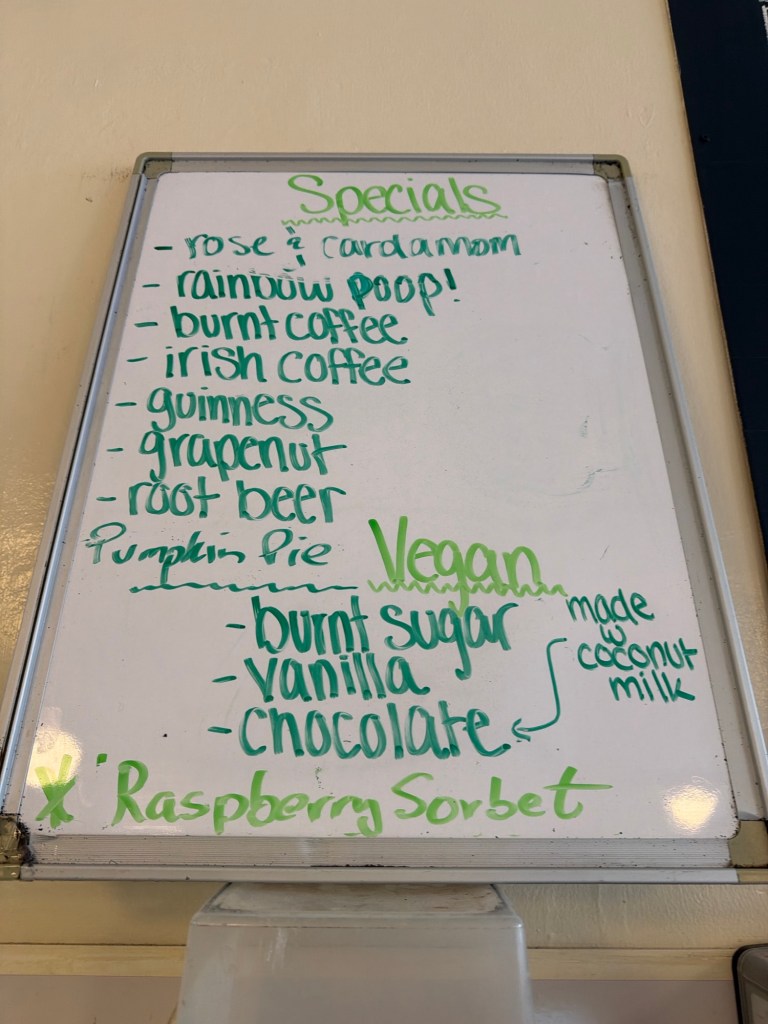 Specials
- rose & cardamom
- rainbow poop!
- burnt coffee
- irish coffee
- guinness
- grapenut
- root beer
Pumpkin Pie
Vegan
- burnt sugar
- vanilla
- chocolate
made
w
coconut
milk
Raspberry Sorbet